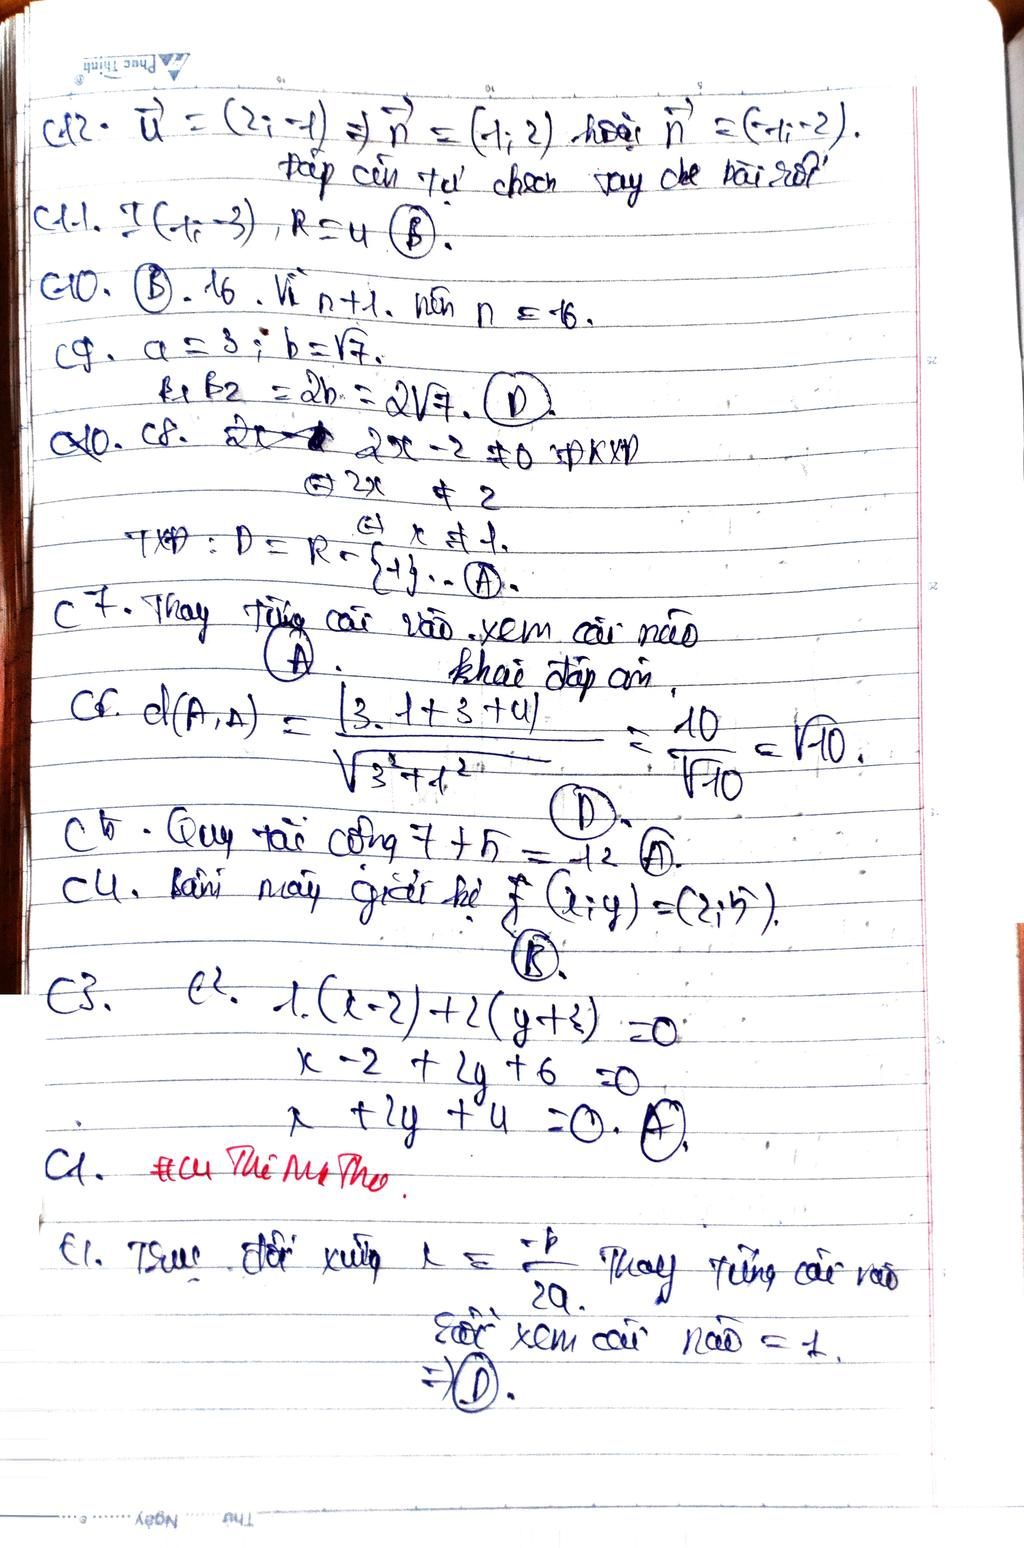 Phúc Thịnh
C12. u⃗ = (2; -1) ⇒ n⃗ = (1; 2) hoặc n⃗ = (-1; -2).
Đáp án tự chọn tay che bài rồi
C11. I(1; -3), R = 4 (B).
C10. (B). 16. Vì n+1. nên n = 16.
C9. a = 3; b = √7.
B1B2 = 2b = 2√7. (D).
C8. 2x - 2 ≠ 0 ĐKXĐ
⇔ 2x ≠ 2
⇔ x ≠ 1.
TXĐ: D = R - {1}. (A).
C7. Thay từng cái vào. xem cái nào
(A). khai đáp án.
C6. d(A, Δ) = |3.1+3+4| / √3²+1² = 10/√10 = √10.
(D).
C5. Quy tắc cộng 7+5 = 12 (A).
C4. Bấm máy giải hệ (x; y) = (2; 5).
(B).
C3. C2. 1.(x-2)+2(y+3) = 0
x - 2 + 2y + 6 = 0
x + 2y + 4 = 0. (A).
C1.
C1. Trục đối xứng x = -b/2a. Thay từng cái vào
rồi xem cái nào = 1.
⇒ (D).
Thứ Ngày